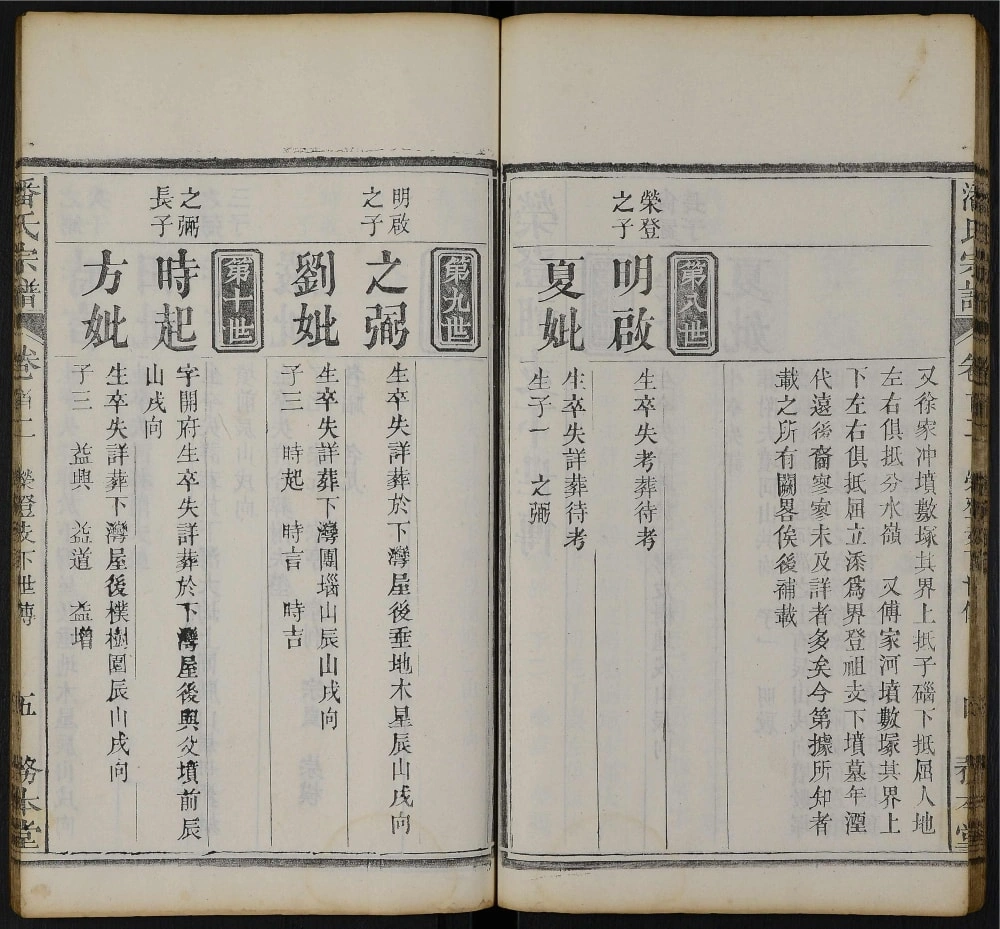 潘氏宗譜
卷首二
又徐家冲墳數塚其界上抵子礄下抵屈人地
左右俱抵分水嶺　又傅家河墳數塚其界上
下左右俱抵屈立添爲界登祖支下墳墓年湮
代遠後裔寥寥未及詳者多矣今第據所知者
載之所有闕畧俟後補載
第八世
榮登
之子
明啟
生卒失考葬待考
夏妣
生卒失詳葬待考
生子一　之弼
第九世
明啟
之子
之弼
生卒失詳葬於下灣屋後垂地木星辰山戌向
劉妣
生卒失詳葬下灣團瑙山辰山戌向
子三　時起　時言　時吉
第十世
之弼
長子
時起
字開府生卒失詳葬於下灣屋後與父墳前辰
山戌向
方妣
生卒失詳葬下灣屋後樸樹園辰山戌向
子三　益興　益道　益增
潘氏宗譜
卷首二
榮登支下世傳
五
務本堂